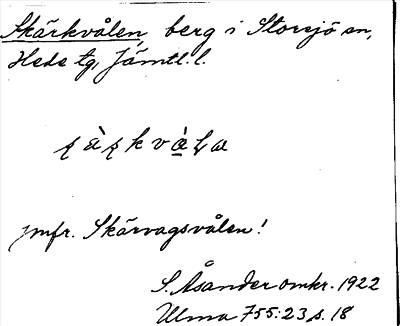 Skärkvålen, berg i Storsjö sn,
Hede tg, Jämtl. l.
jmfr. Skärvagsvålen!
S. Åsander omkr. 1922
Ulma 755:23 s. 18